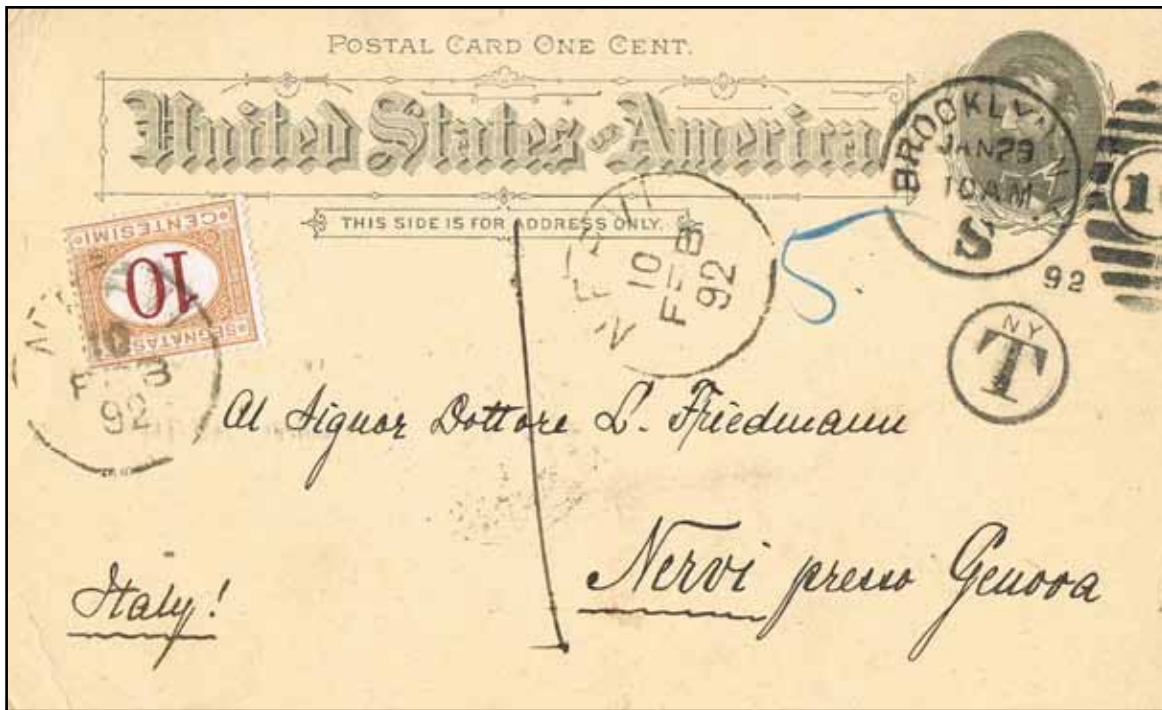 POSTAL CARD ONE CENT.
United States of America
THIS SIDE IS FOR ADDRESS ONLY.
BROOKLYN
JAN 29
10 AM
S
92
1
NY
T
SEGNATASSE
10
CENTESIMI
10
FEB
92
NERVI
10
FEB
92
Al Signor Dottore L. Friedmann
Nervi presso Genova
Italy!